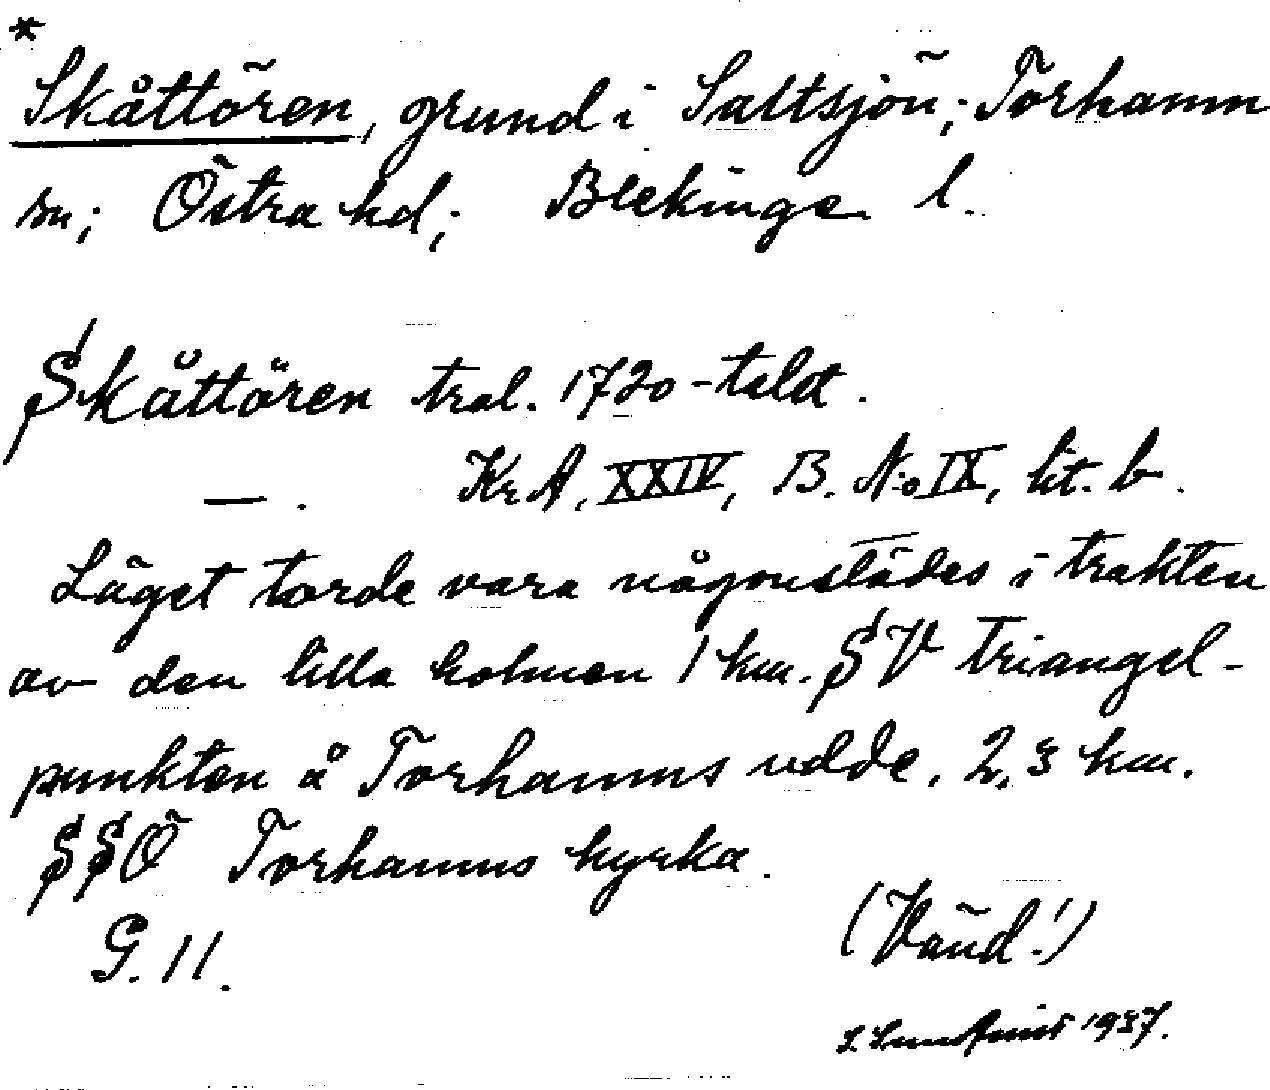 *
Skåttören, grund i Saltsjön; Torhamn
sn; Östra hd; Blekinge l.
Skåttören tral. 1720-talet.
—. KrA, XXIV, B. No IX, lit. b.
Läget torde vara någonstädes i trakten
av den lilla holmen 1 km. SV triangel-
punkten å Torhamns udde, 2,3 km.
SSÖ Torhamns kyrka.
G. 11.
(Vänd!)
1937.